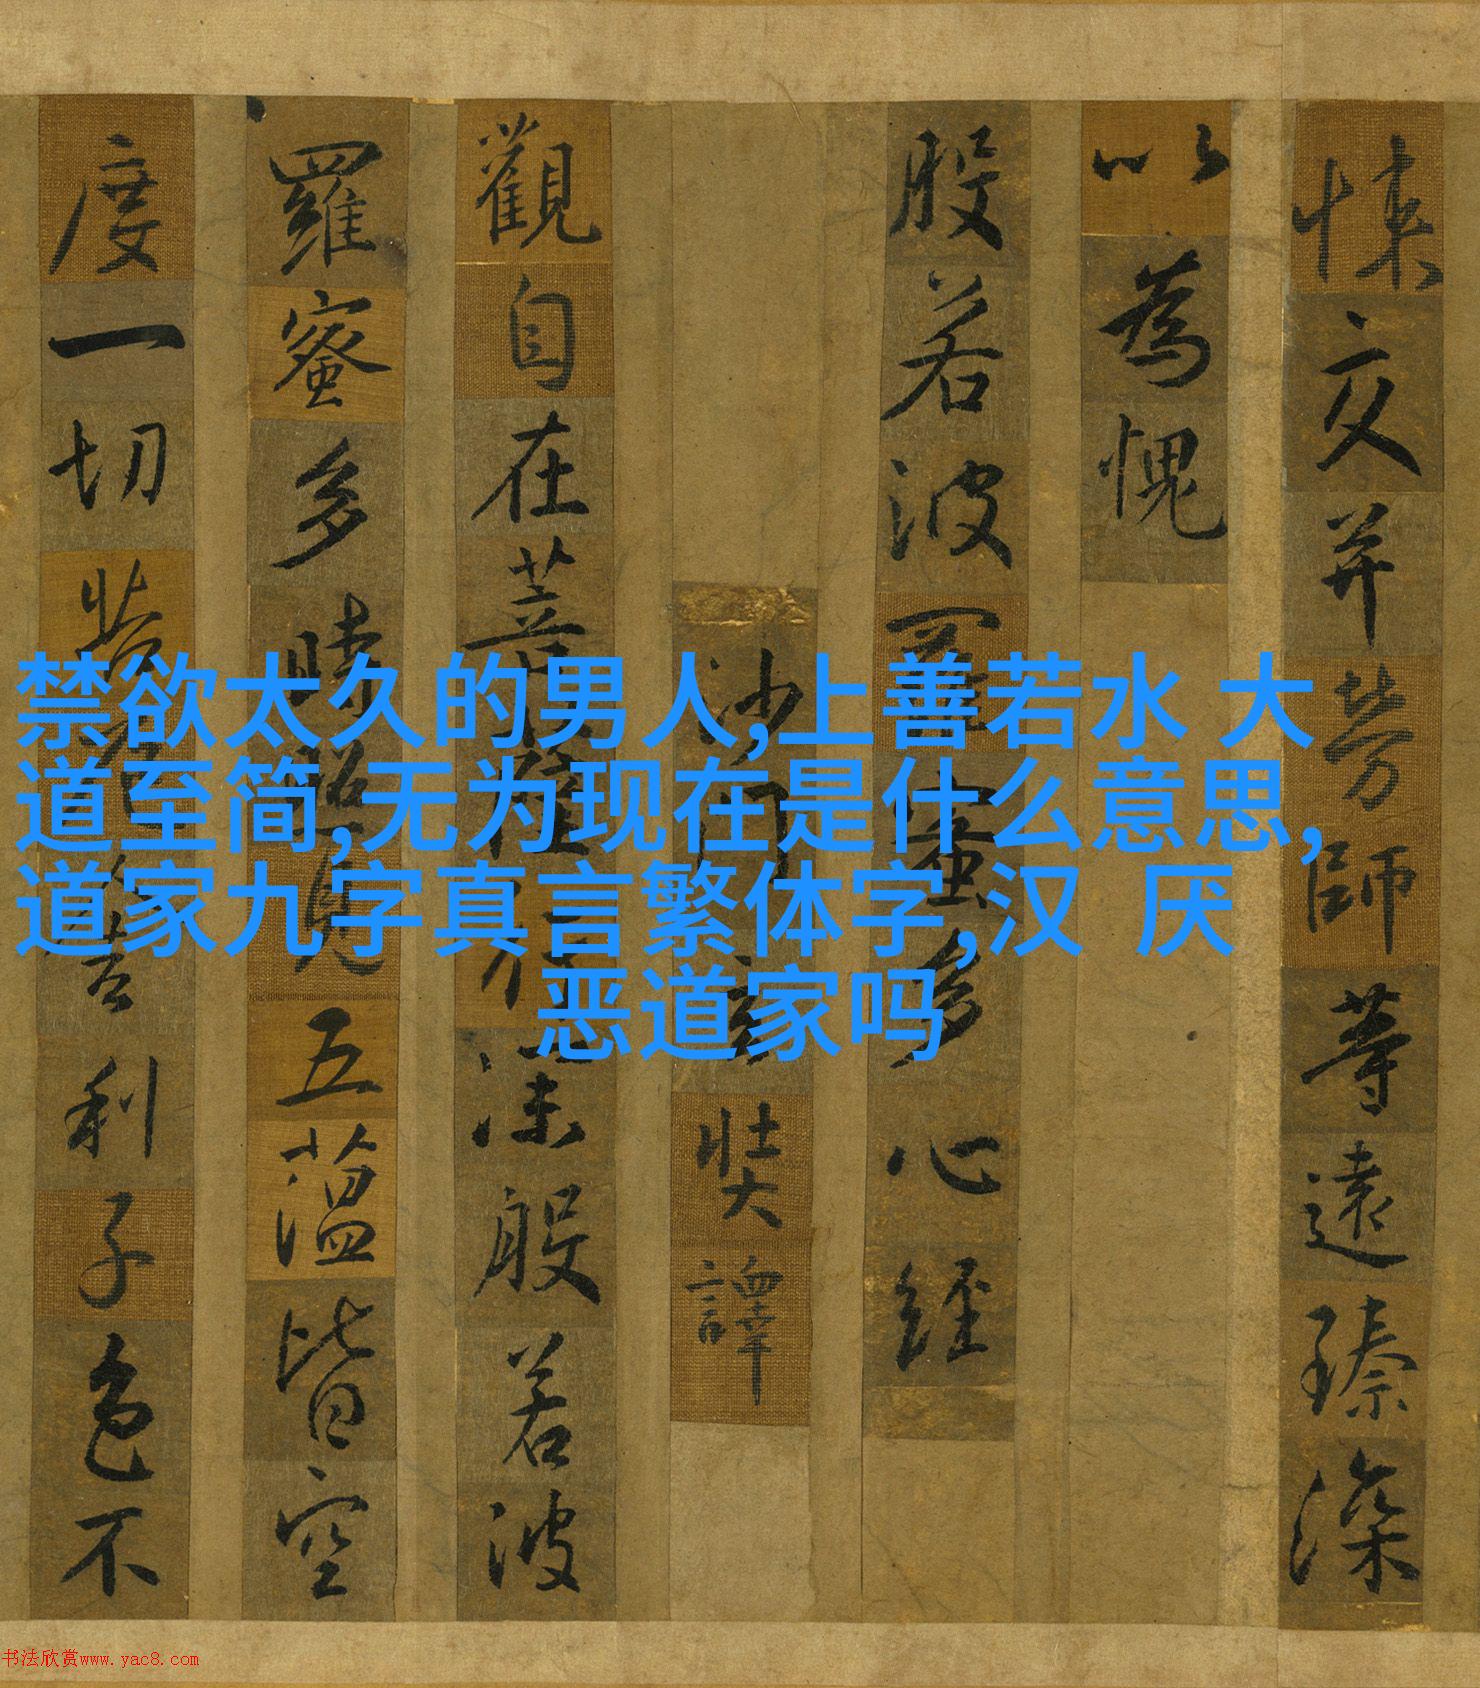 悚交并劳師等遠臻深
以為愧
般若波羅蜜多心経
沙門玄奘譯
觀自在菩薩行深般若波
羅蜜多時照見五蘊皆空
度一切苦厄舍利子色不
禁欲太久的男人,上善若水 大
道至简,无为现在是什么意思,
道家九字真言繁体字,汉 厌
恶道家吗
书法欣赏www.yac8.com